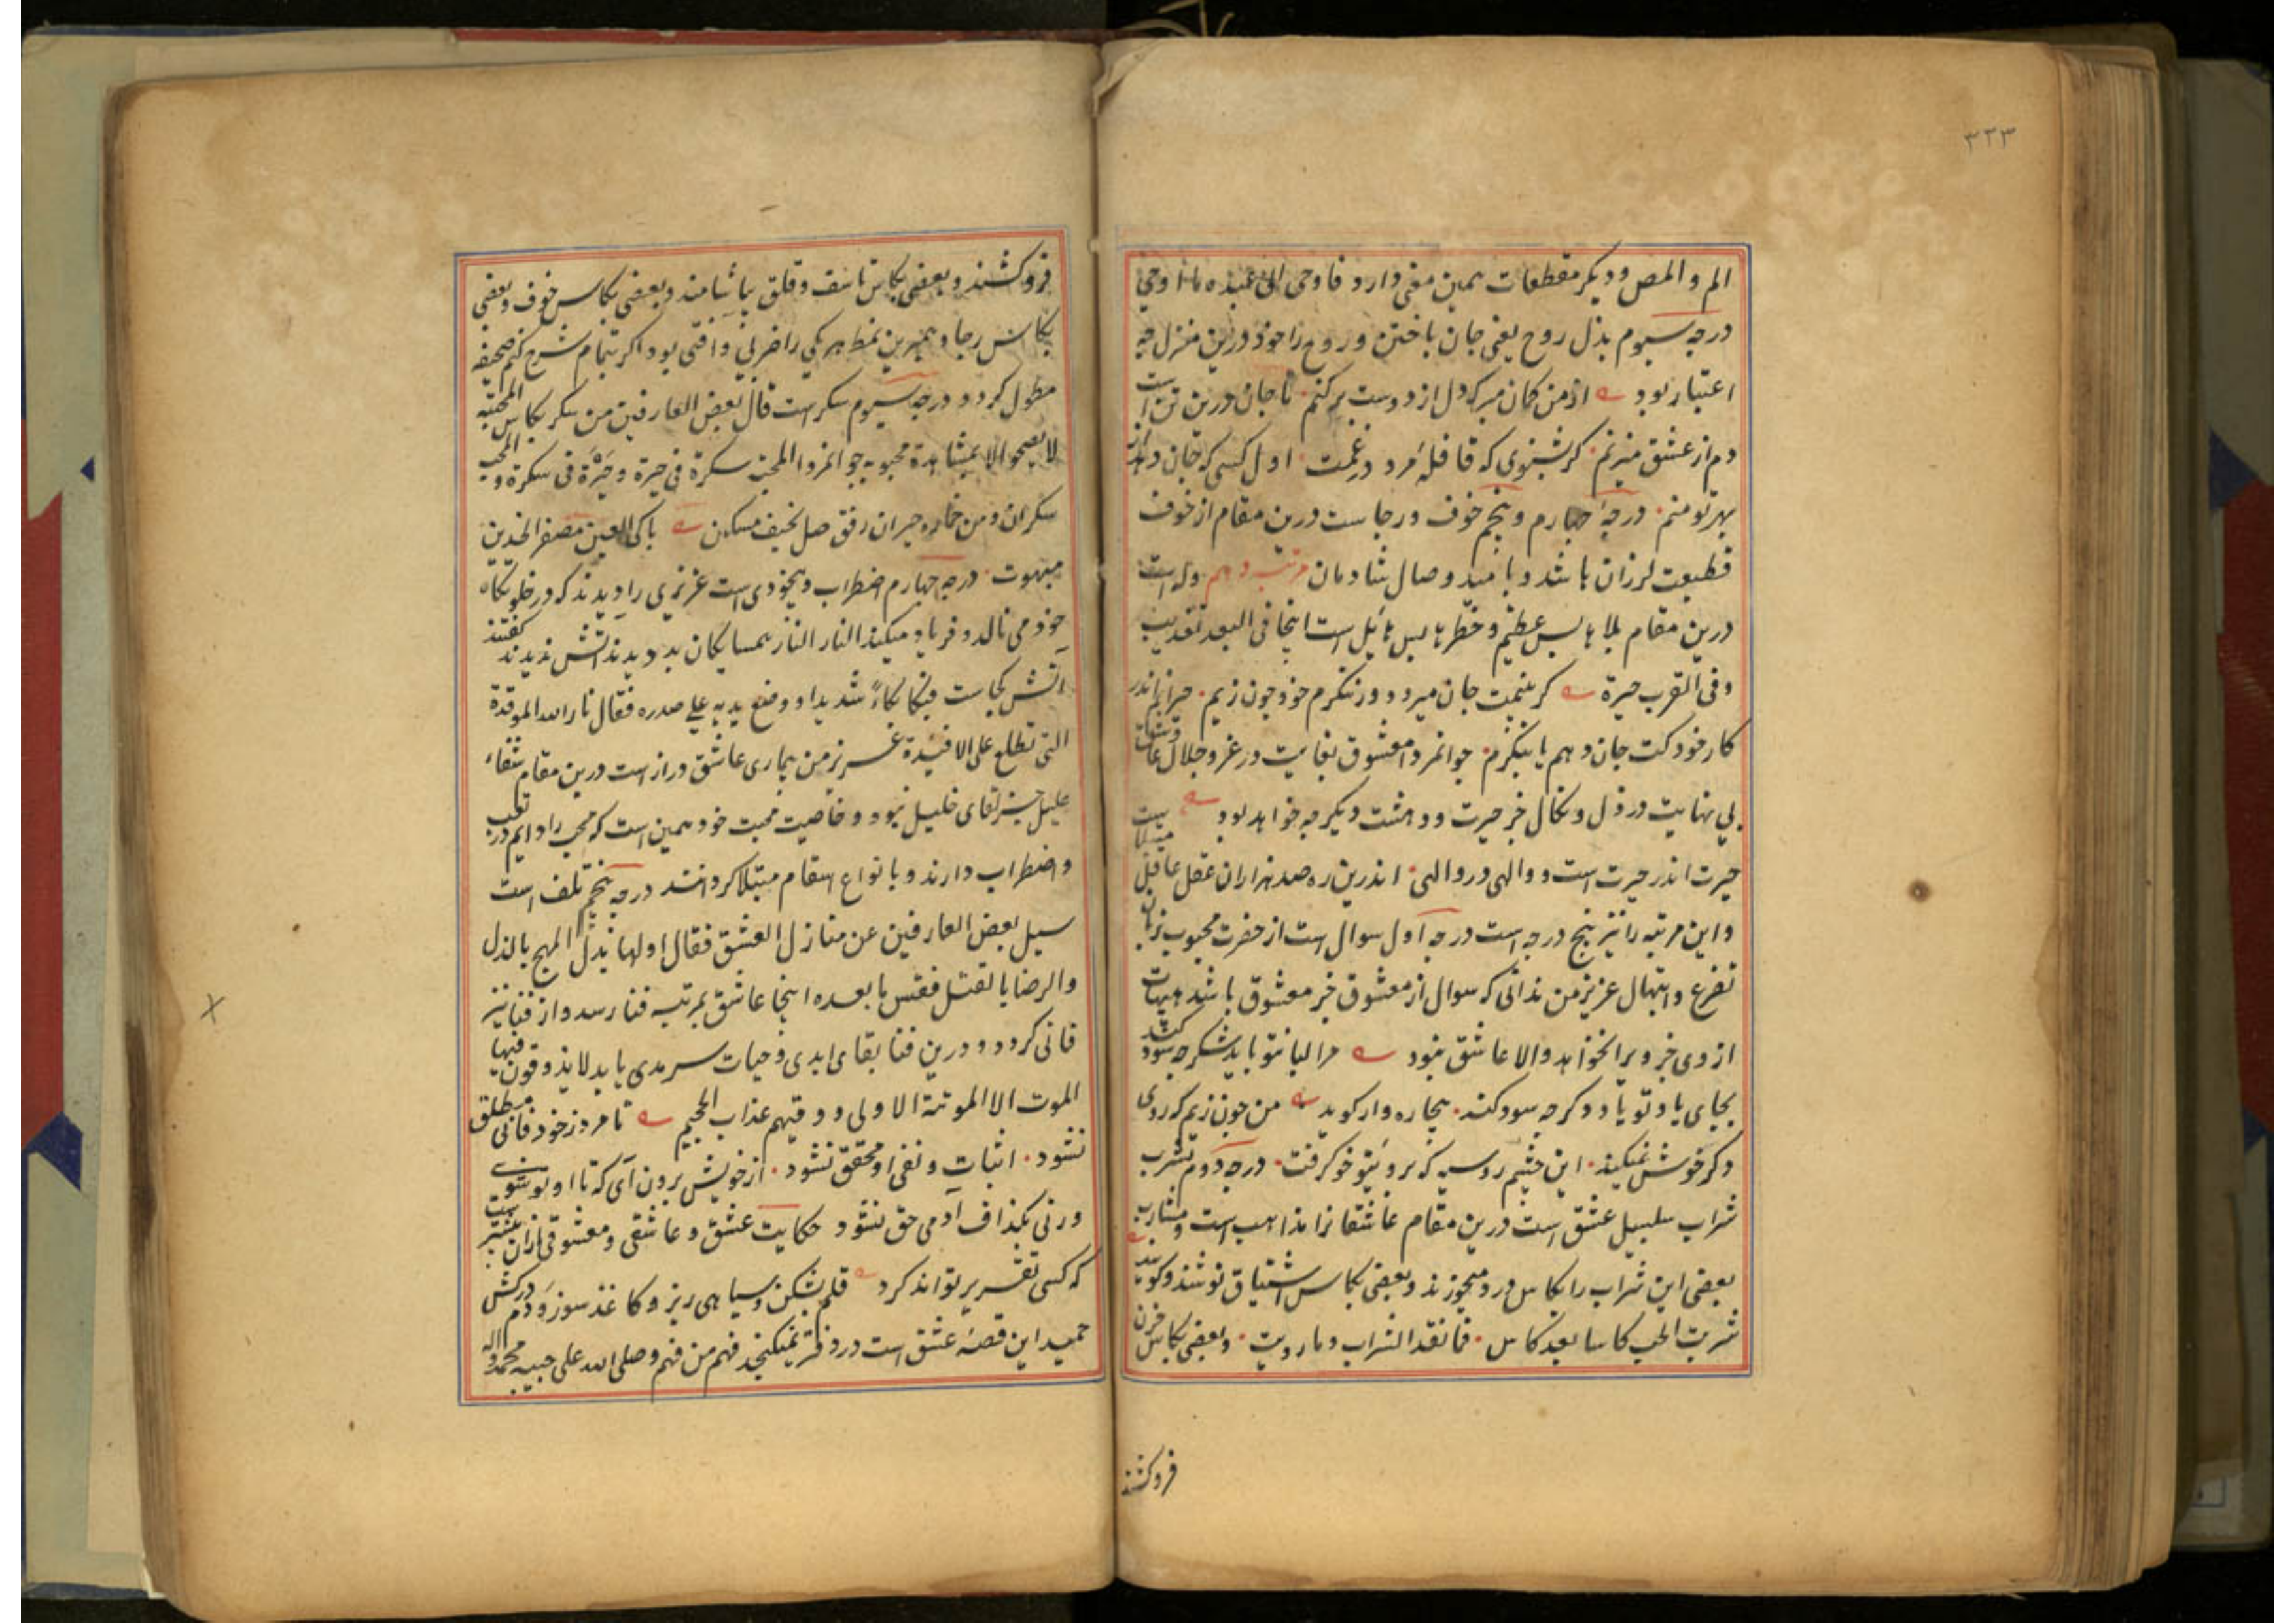 ۳۲۳
الم و المص و دیگر مقطعات همین معنی دارد فاوحی الی عبده ما اوحی
درجه سیوم بذل روح یعنی جان باختن و روح را خود درین منزل چه
اعتبار بود از من کمان مبر که دل از دوست برکنم تا جان درین تن است
دم از عشق میزنم کر بشنوی که قافله مرد در غمت اول کسی که جان دهد از
بهر تو منم درجه چهارم و پنجم خوف و رجاست درین مقام از خوف
قطیعت لرزان باشد و بامید وصال شادمان مرتبه دهم وله است
درین مقام بلاها بس عظیم و خطرها بس هایل است اینجا فی البعد تعذیب
و فی القرب حیرة کر بینمت جان میرود ور ننکرم خود چون زیم حیرانم اندر
کار خود کت جان دهم یا بنکرم جوانمردا معشوق بغایت در عز و جلال عاشق
بی نهایت در ذل و نکال جز حیرت و دهشت دیکر چه خواهد بود
حیرت اندر حیرت است و والهی در والهی اندرین ره صد هزاران عقل عاقل مبتلاست
و این مرتبه را نیز پنج درجه است درجه اول سوال است از حضرت محبوب بزبان
تضرع و ابتهال عزیز من ندانی که سوال از معشوق جز معشوق باشد هیهات
از وی جز ویرا نخواهد والا عاشق نبود مرا لبا نتو باید شکر چه سود کند
بجای یاد تو یاد دکر چه سود کند بیچاره وار کوید من چون زیم که روی
دکر خوش نمیکند این چشم روسیه که بروئیتو خو کرفت درجه دوم شرب
شراب سلسبیل عشق است درین مقام عاشقانرا مذاهب است و مشارب
بعضی این شراب را بکاس ورد میخورند و بعضی بکاس اشتیاق نوشند و کویند
شربت الحب کاسا بعد کاس فما نفد الشراب و ما رویت و بعضی بکاس حزن
فروکشند
فروکشند و بعضی بکاس تاسف و قلق بیاشامند و بعضی بکاس خوف و بعضی
بکاس رجا و همبرین نمط هر یکی را ضربی وافتی بود اکر بتمام شرح کنم صحیفه
مطول کردد درجه سیوم سکر است قال بعض العارفین من سکر بکاس المحبة
لا یصحوا الا بمشاهدة محبوبه جوانمردا المحبة سکرة فی حیرة و حیرة فی سکرة و المحب
سکران و من خماره حیران رفق صل نحیف مسکن باکی العین مصفر الخدین
مبهوت درجه چهارم اضطراب و بیخودی است عزیزی را دیدند که در خلوتکاه
خود می نالد و فریاد میکند النار النار همسایکان بدویدند آتش ندیدند کفتند
آتش کجاست فبکا بکاءً شدیدا و وضع یدیه علی صدره فقال نار الله الموقدة
التی تطلع علی الافئدة عزیز من بیماری عاشق دراز است درین مقام شفاء
علیل جز لقای خلیل نبود و خاصیت محبت خود همین است که محب را دایم در تعب
و اضطراب دارند و بانواع اسقام مبتلا کردانند درجه پنجم تلف است
سیل بعض العارفین عن منازل العشق فقال اولها بذل المهج بالذل
والرضا بالقتل فقس ما بعده اینجا عاشق بمرتبه فنا رسد و از فنا نیز
فانی کردد و درین فنا بقای ابدی و حیات سرمدی یابد لا یذوقون فیها
الموت الا الموتة الاولی و وقیهم عذاب الجحیم تا مرد ز خود فانی مطلق
نشود اثبات و نفی او محقق نشود از خویش برون آی که تا او تو شوی
ورنی بکذاف آدمی حق نشود حکایت عشق و عاشقی و معشوقی ازان بیشتر است
که کسی تقریر تواند کرد قلم بشکن و سیاهی ریز و کاغذ سوز و دم درکش
حمید این قصه عشق است در دفتر نمیکنجد فهم من فهم و صلی الله علی حبیبه محمد و اله